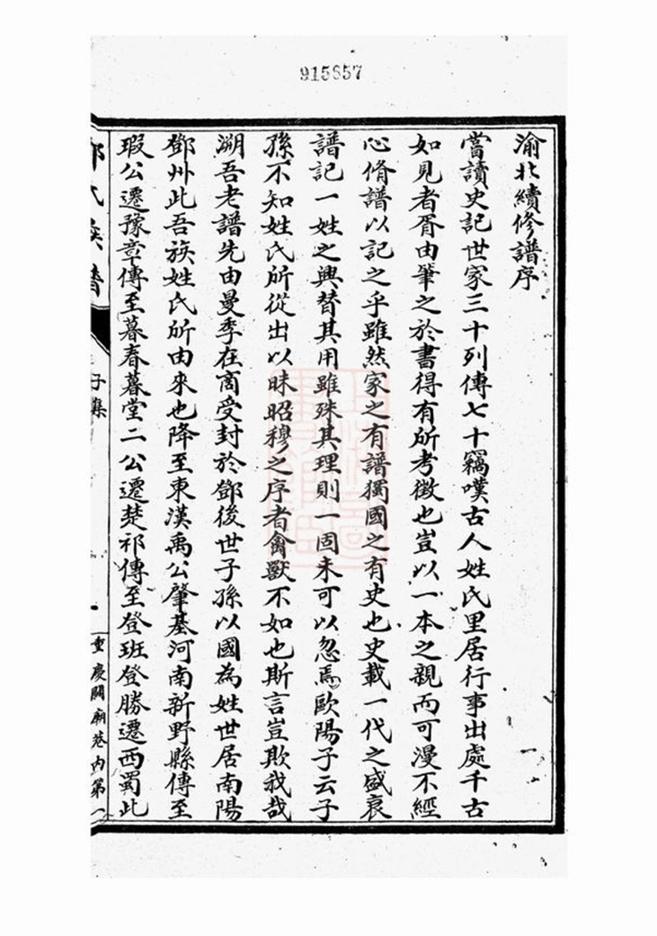 915657
渝北續修譜序
嘗讀史記世家三十列傳七十竊嘆古人姓氏里居行事出處千古
如見者胥由筆之於書得有所考徵也豈以一本之親而可漫不經
心脩譜以記之乎雖然家之有譜獨國之有史也史載一代之盛衰
譜記一姓之興替其用雖殊其理則一固未可以忽焉歐陽子云子
孫不知姓氏所從出以昧昭穆之序者禽獸不如也斯言豈欺我哉
溯吾老譜先由曼季在商受封於鄧後世子孫以國為姓世居南陽
鄧州此吾族姓氏所由來也降至東漢禹公肇基河南新野縣傳至
瑕公遷豫章傳至暮春暮堂二公遷楚祁傳至登班登勝遷西蜀此
氏族譜
子集
一
重慶關廟巷內第一